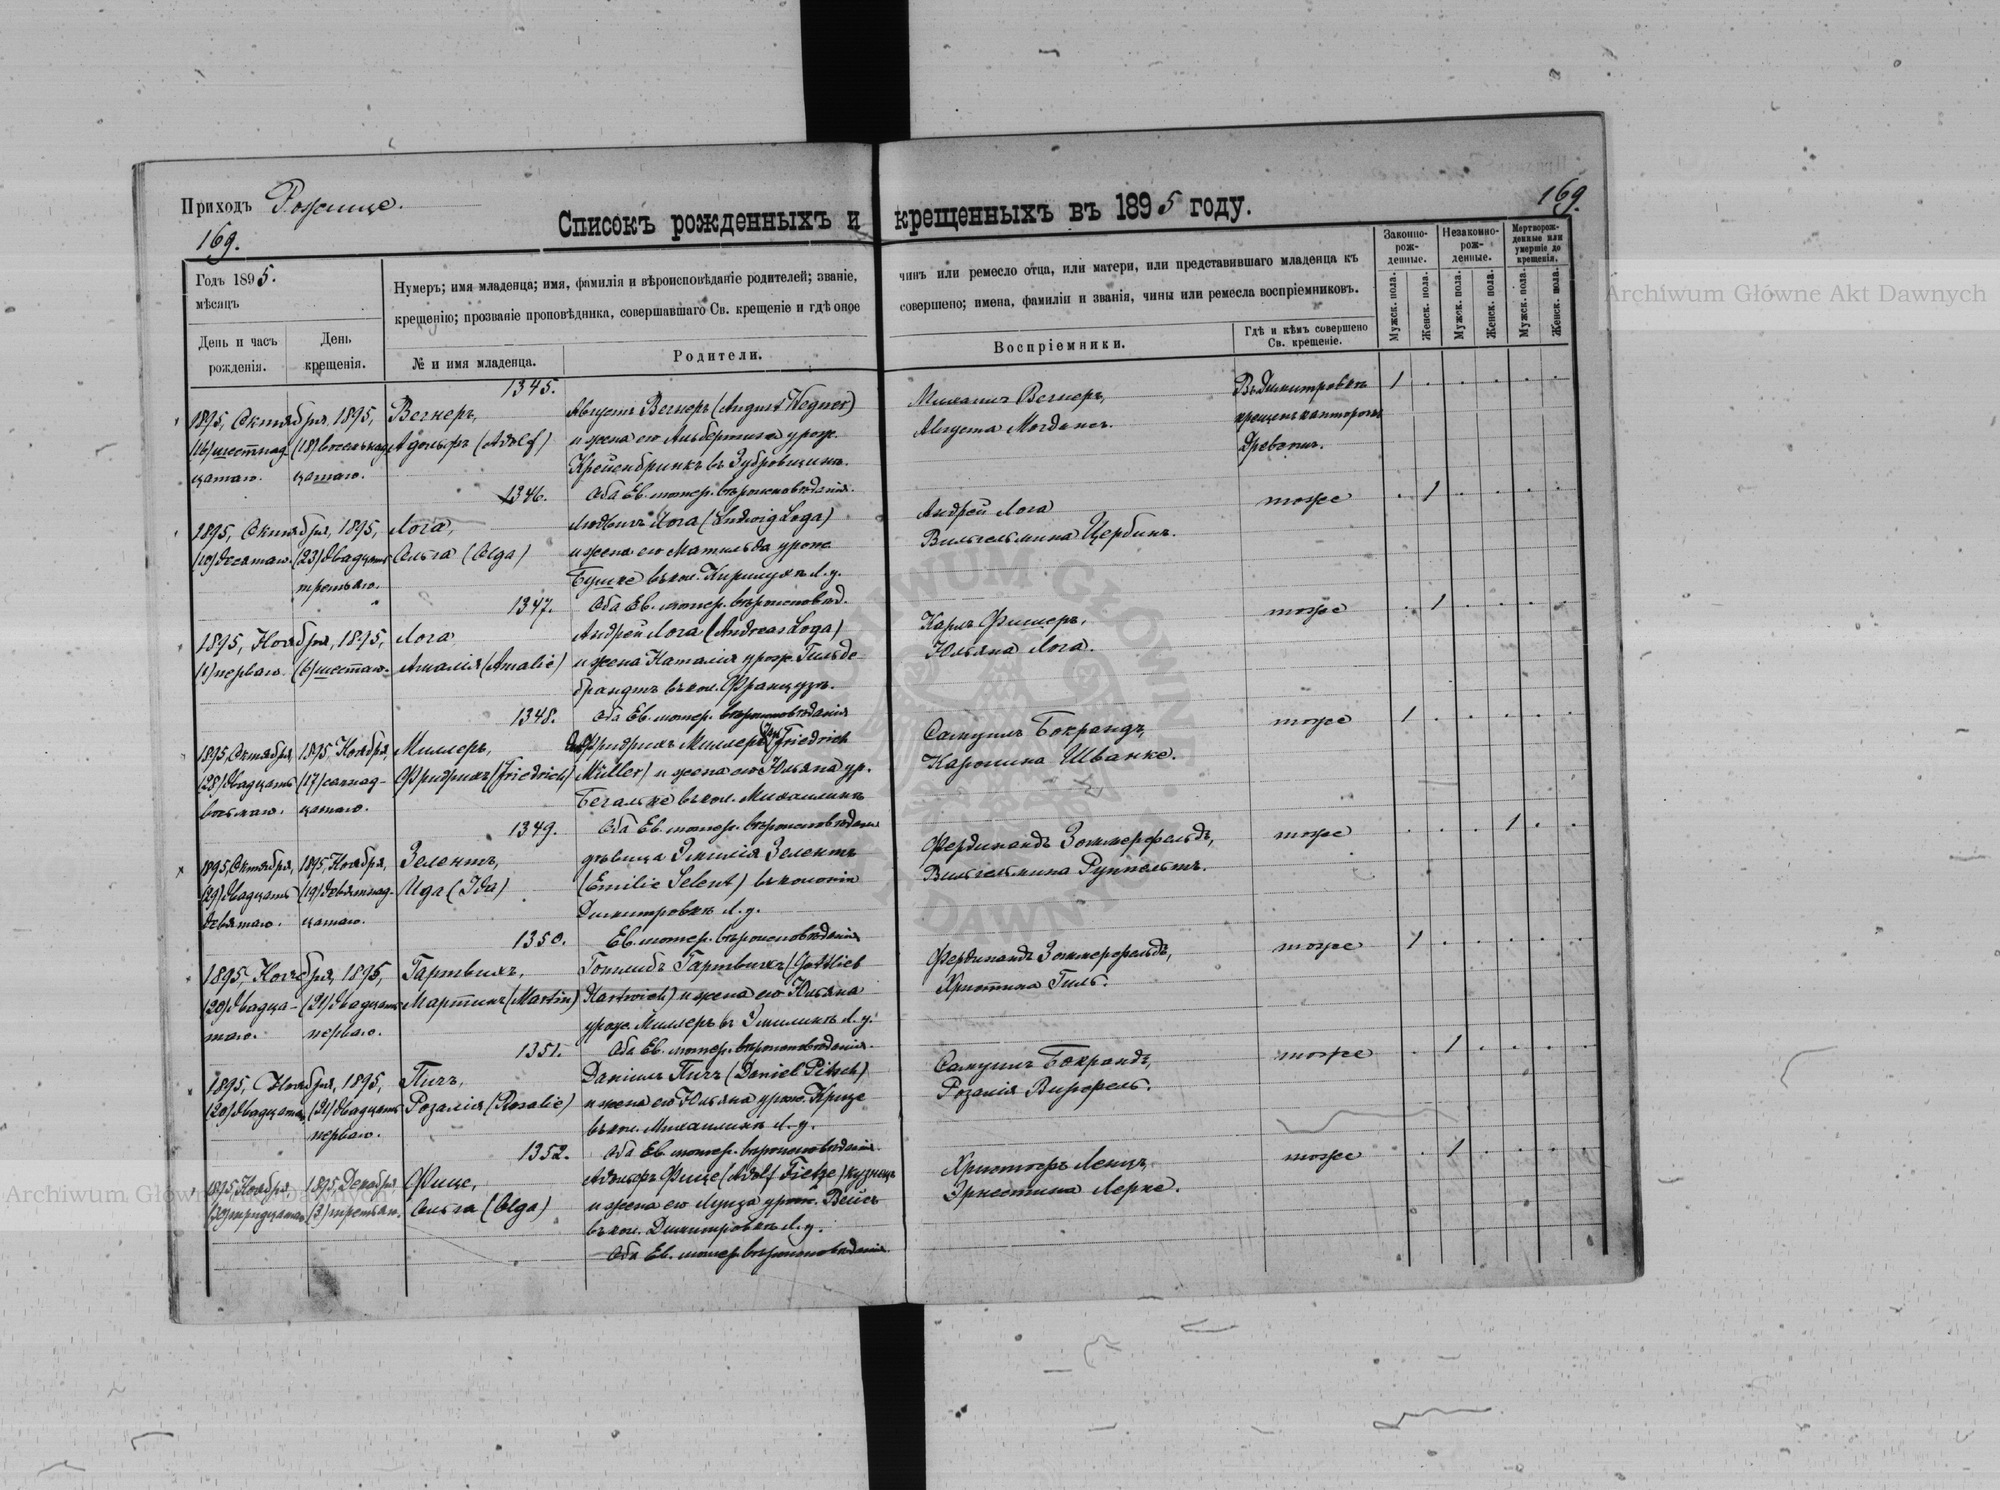 Приходъ Рожище.
169.
169.
Списокъ рожденныхъ и крещенныхъ въ 1895 году.
Годъ 1895.
мѣсяцъ
День и часъ рожденія.
День крещенія.
Нумеръ; имя младенца; имя, фамилія и вѣроисповѣданіе родителей; званіе, чинъ или ремесло отца, или матери, или представившаго младенца къ
крещенію; прозваніе проповѣдника, совершавшаго Св. крещеніе и гдѣ оное совершено; имена, фамиліи и званія, чины или ремесла воспріемниковъ.
№ и имя младенца.
Родители.
Воспріемники.
Гдѣ и кѣмъ совершено Св. крещеніе.
Законно-рож-денные.
Незаконно-рож-денные.
Мертворож-денные или умершіе до крещенія.
Мужск. пола.
Женск. пола.
Мужск. пола.
Женск. пола.
Мужск. пола.
Женск. пола.
1345.
1895, Октября, 1895,
(16) шестнад-
цатаго.
(18) восемнад-
цатаго.
Вегнеръ,
Адольфъ (Adolf)
Августъ Вегнеръ (August Wegner)
и жена его Альбертина урож.
въ Зубровщинѣ.
Оба Ев. лютер. вѣроисповѣданія.
Михаилъ Вегнеръ,
Августа
Въ Димитровкѣ
крещенъ канторомъ
Древсомъ.
1346.
1895, Октября, 1895,
(10) десятаго.
(23) двадцать
третьяго.
Лога,
Ольга (Olga)
Людвигъ Лога (Ludwig Loga)
и жена его Матильда урож.
Бушке въ кол. Л. у.
Оба Ев. лютер. вѣроисповѣд.
Андрей Лога
Вильгельмина Цербинъ.
тоже
1347.
1895, Ноября, 1895,
(1) перваго.
(6) шестаго.
Лога,
Амалія (Amalie)
Андрей Лога (Andreas Loga)
и жена Наталія урож. Гильде-
брандтъ въ кол. Французъ.
Оба Ев. лютер. вѣроисповѣданія
Карлъ Фишеръ,
Юльяна Лога.
тоже
1348.
1895, Октября,
(28) двадцать
восьмаго.
1895, Ноября,
(17) семнад-
цатаго.
Миллеръ,
Фридрихъ (Friedrich)
Фридрихъ Миллеръ (Friedrich
Müller) и жена его Юльяна ур.
въ кол. Михаилинѣ
Оба Ев. лютер. вѣроисповѣдан.
Самуилъ Бокрандъ,
Каролина Шванке.
тоже
1349.
1895, Октября,
(29) двадцать
девятаго.
1895, Ноября,
(19) девятнад-
цатаго.
Зелентъ,
Ида (Ida)
дѣвица Эмилія Зелентъ
(Emilie Selent) въ колоніи
Димитровкѣ Л. у.
Ев. лютер. вѣроисповѣданія
Фердинандъ Зоммерфельдъ,
Вильгельмина Руппельтъ.
тоже
1350.
1895, Ноября, 1895,
(20) двадца-
таго.
(21) двадцать
перваго.
Гартвихъ,
Мартинъ (Martin)
Готлибъ Гартвихъ (Gottlieb
Hartwich) и жена его Юльяна
урож. Миллеръ въ Эмилинѣ Л. у.
Оба Ев. лютер. вѣроисповѣданія.
Фердинандъ Зоммерфельдъ,
Христина Гиль.
тоже
1351.
1895, Ноября, 1895,
(20) двадцатаго
(21) двадцать
перваго.
Пичъ,
Розалія (Rosalie)
Даніилъ Пичъ (Daniel Pitsch)
и жена его Юльяна урож. Криге
въ кол. Михаилинѣ Л. у.
Оба Ев. лютер. вѣроисповѣданія
Самуилъ Бокрандъ,
Розалія
тоже
1352.
1895, Ноября
(30) тридцатаго
1895, Декабря
(3) третьяго.
Фице,
Ольга (Olga)
Адольфъ Фице (Adolf Fietze) кузнецъ
и жена его Луиза урож. Вейсъ
въ кол. Димитровкѣ Л. у.
Оба Ев. лютер. вѣроисповѣданія.
Христофъ Ленцъ,
Эрнестина Лерке.
тоже
Archiwum Główne Akt Dawnych
Archiwum Główne Akt Dawnych
ARCHIWUM GŁÓWNE AKT DAWNYCH